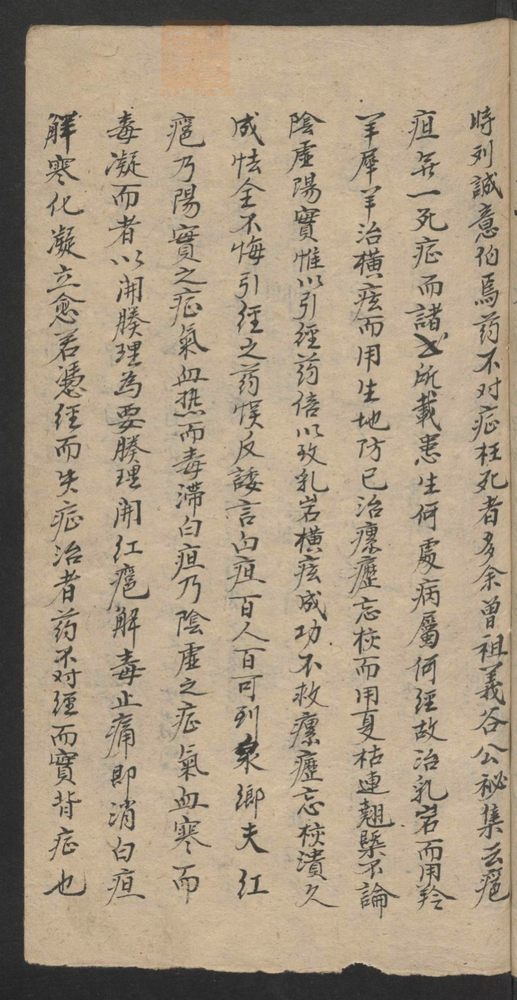 時列誠意伯焉药不对症枉死者多余曾祖義谷公秘集云癰
疽無一死症而諸书所載患生何處病屬何經故治乳岩而用羚
羊犀羊治横痃而用生地防已治瘰癧忘核而用夏枯連翹槩不論
陰虛陽實惟以引經药倍以致乳岩横痃成功不救瘰癧忘核潰久
成怯全不悔引経之药悮反諉言白疽百人百可到泉鄉夫红
癰乃陽實之症氣血热而毒滞白疽乃陰虛之症氣血寒而
毒凝而者以開腠理為要腠理開红癰解毒止痛即消白疽
觧寒化凝立愈若憑经而失症治者药不对經而實背症也